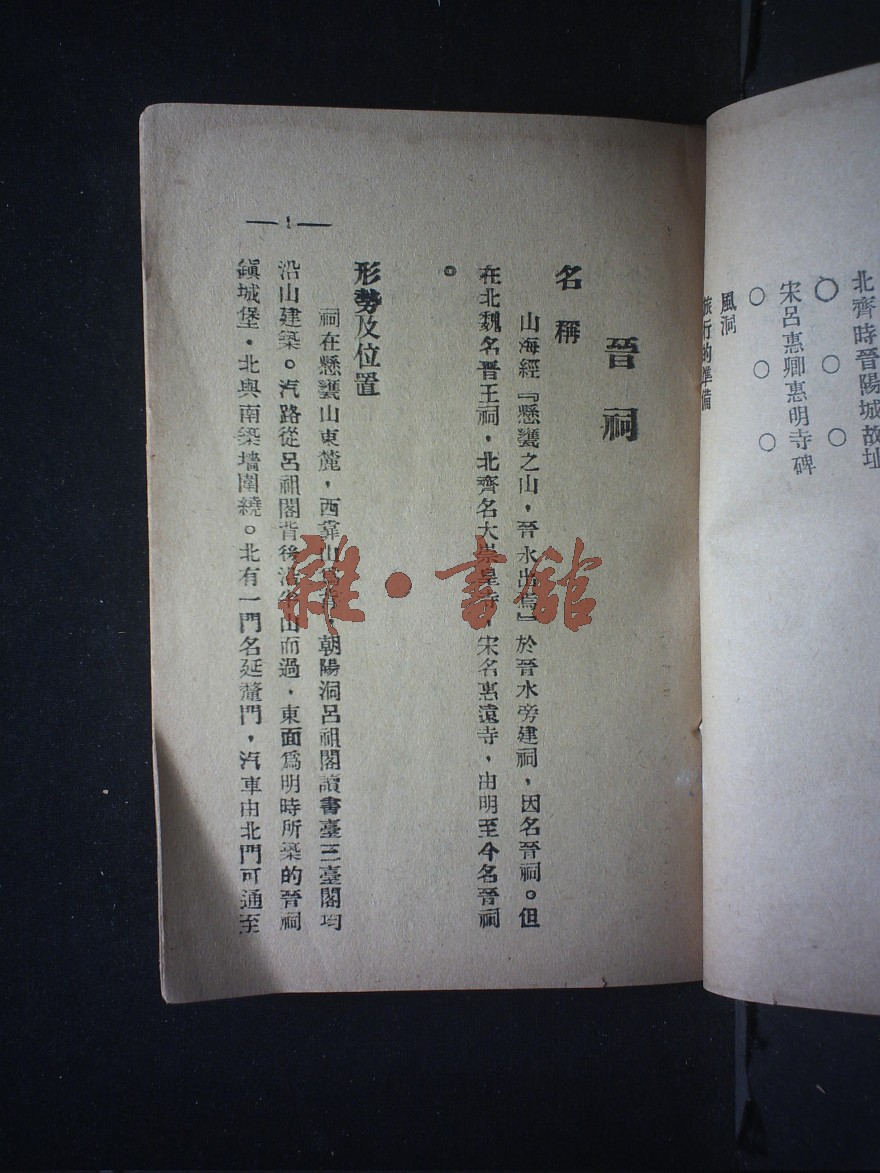 北齊時晉陽城故址
○ ○ ○
宋呂惠卿惠明寺碑
○ ○ ○
風洞
旅行的準備
晉祠
名稱
山海經『懸甕之山，晉水出焉』於晉水旁建祠，因名晉祠。但
在北魏名晉王祠，北齊名大崇皇寺，宋名惠遠寺，由明至今名晉祠
。
形勢及位置
祠在懸甕山東麓，西靠山爲背，朝陽洞呂祖閣讀書臺三臺閣均
沿山建築。汽路從呂祖閣背後沿半山而過，東面爲明時所築的晉祠
鎮城堡，北與南築墻圍繞。北有一門名延釐門，汽車由北門可通至
—1—
雜·書館